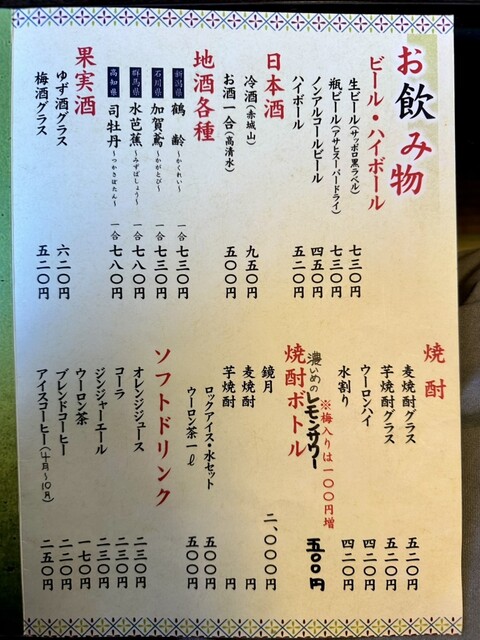 お飲み物
ビール・ハイボール
生ビール(サッポロ黒ラベル) 七三〇円
瓶ビール(アサヒスーパードライ) 七三〇円
ノンアルコールビール 四五〇円
ハイボール 五二〇円
日本酒
冷酒(赤城山) 九五〇円
お酒一合(高清水) 五〇〇円
地酒各種
新潟県 鶴齢~かくれい~ 一合 七三〇円
石川県 加賀鳶~かがとび~ 一合 七三〇円
群馬県 水芭蕉~みずばしょう~ 一合 七八〇円
高知県 司牡丹~つかさぼたん~ 一合 七八〇円
果実酒
ゆず酒グラス 六二〇円
梅酒グラス 五二〇円
焼酎
麦焼酎グラス 五二〇円
芋焼酎グラス 五二〇円
ウーロンハイ 四二〇円
水割り 四二〇円
※梅入りは一〇〇円増
濃いめのレモンサワー 五〇〇円
焼酎ボトル
鏡月 二、〇〇〇円
麦焼酎 円
芋焼酎 円
ロックアイス・水セット 五〇〇円
ウーロン茶一ℓ 五〇〇円
ソフトドリンク
オレンジジュース 二三〇円
コーラ 二三〇円
ジンジャーエール 二三〇円
ウーロン茶 一七〇円
ブレンドコーヒー 二二〇円
アイスコーヒー(十月~10月) 二五〇円